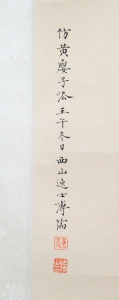 仿黃子壬午冬日西山逸士溥儒